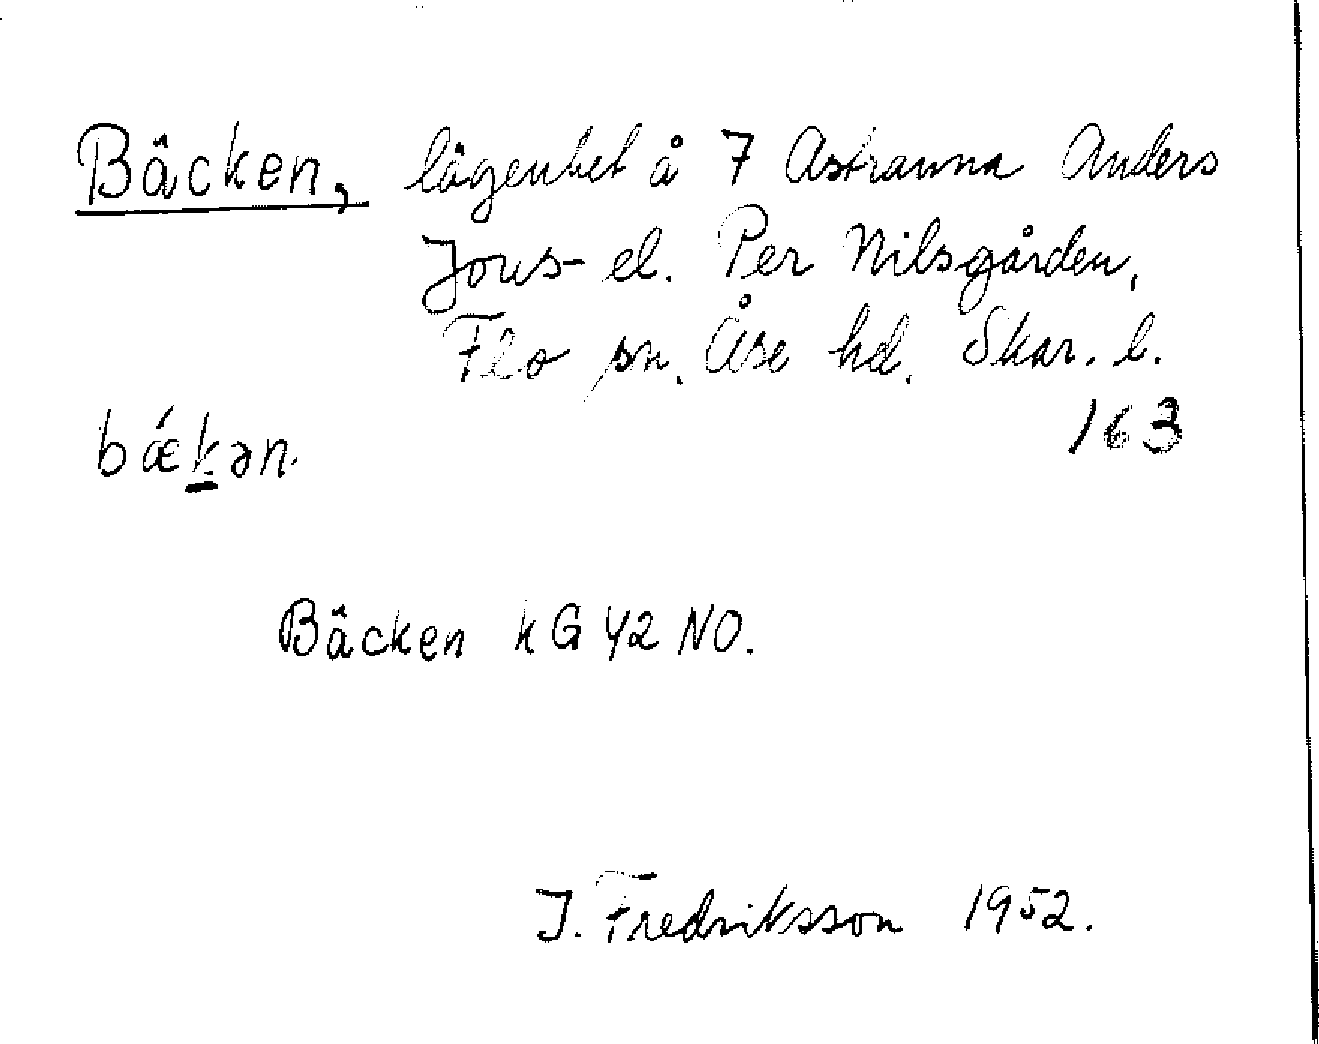 Bäcken, lägenhet å 7 Astranna Anders
Jons- el. Per Nilsgården,
Flo sn. Åse hd. Skar. l.
163
bǽk̲ən.
Bäcken kG Y2 NO.
J. Fredriksson 1952.